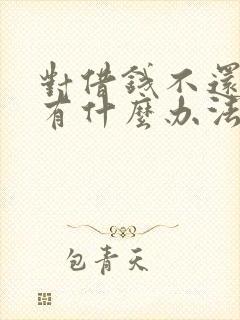 對借錢不還
有什麼办法
包青天